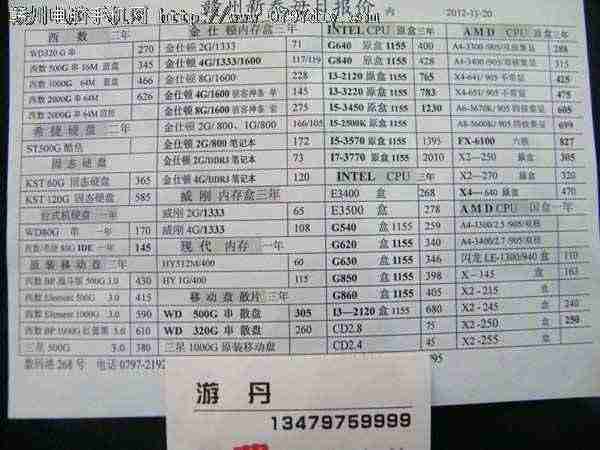 赣州电脑手机网 http://www.0797diy.com
报价 内 2012-11-20
西 数 三年
WD320 G 串 270
西数 500G 串 16M 蓝盘 345
西数 1000G 64M 蓝盘 466
西数 2000G 64M 626
希捷硬盘 二年
ST500G 酷鱼
固态硬盘
KST 60G 固态硬盘 365
KST 120G 固态硬盘 585
台式机硬盘 一年
WD80G 串 一年 170
80G IDE 一年 145
原装移动盘 三年
500G 3.0 430
西数 Element 500G 3.0 415
西数 Element 1000G 3.0 590
西数 BP 1000G 3.0 610
三星 500G 3.0 380
数码港 268 号 电话 0797-2192
金士顿内存盒 三年
金士顿 2G/1333 71
金士顿 4G/1333/1600 117/119
金士顿 8G/1600 228
金士顿 4G/1600 骇客神条 单 145
金士顿 8G/1600 骇客神条 套 275
金士顿 2G/800、1G/800 166/105
金士顿 2G/800 笔记本 172
金士顿 2G/DDR3 笔记本 73
金士顿 4G/DDR3 笔记本 120
威刚 内存盒三年
威刚 2G/1333 65
威刚 4G/1333 108
现代 内存 一年
HY512M/400 60
HY 1G/400 115
移动盘散片 三年
WD 500G 串 散盘 305
WD 320G 串 散盘 260
三星 1000G 原装移动盘
INTEL CPU 原盒三年
G640 原盒 1155 400
G840 原盒 1155 428
I3-2120 原盒 1155 765
I3-3220 原盒 1155 783
I5-3450 原盒 1155 1230
I5-2500K 原盒 1155
I5-3570 原盒 1155 1395
I7-3770 原盒 1155 2010
INTEL CPU 三年
E3400 盒 268
E3500 盒 278
G540 盒 1155 259
G620 盒 1155 294
G630 盒 1155 346
G850 盒 1155 398
G860 盒 1155 405
I3—2120 盒 1155 680
CD2.8 75
CD2.4 45
AMD CPU 原盒三年
A4-3300 /905/双核集显 288
A4-3400 /905/双核集显 315
X4-641/ 905/ 不带显 425
X4-651/ 905/ 不带显 475
A6-3670K/ 905/ 四核集显 605
A8-3870K/ 905/ 四核集显 699
FX-6100 六核 827
X2—250 原盒 305
X2—270 原盒 320
X4—640 原盒 470
AMD CPU 国盒一年
A4-3300/2.5 /905/双核
A4-3400/2.7 /905/双核
闪龙 LE-1300/940 盒 110
X－145 盒 163
X2－215 盒
X2－245 盒 240
X2-250 盒 250
X2-255 盒
游 丹
13479759999